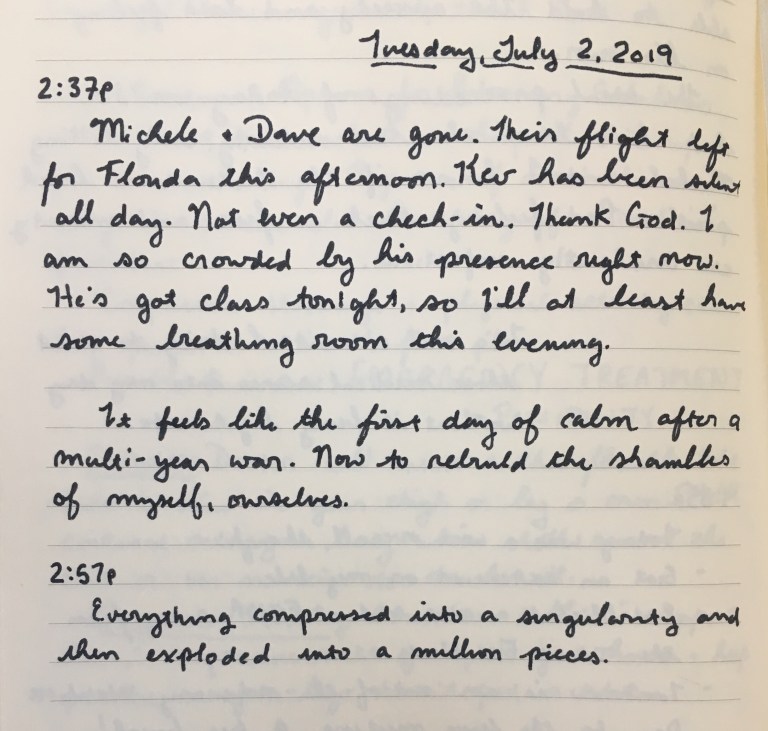 Tuesday, July 2, 2019
2:37p
Michele + Dave are gone. Their flight left
for Florida this afternoon. Kev has been silent
all day. Not even a check-in. Thank God. I
am so crowded by his presence right now.
He's got class tonight, so I'll at least have
some breathing room this evening.
It feels like the first day of calm after a
multi-year war. Now to rebuild the shambles
of myself, ourselves.
2:57p
Everything compressed into a singularity and
then exploded into a million pieces.